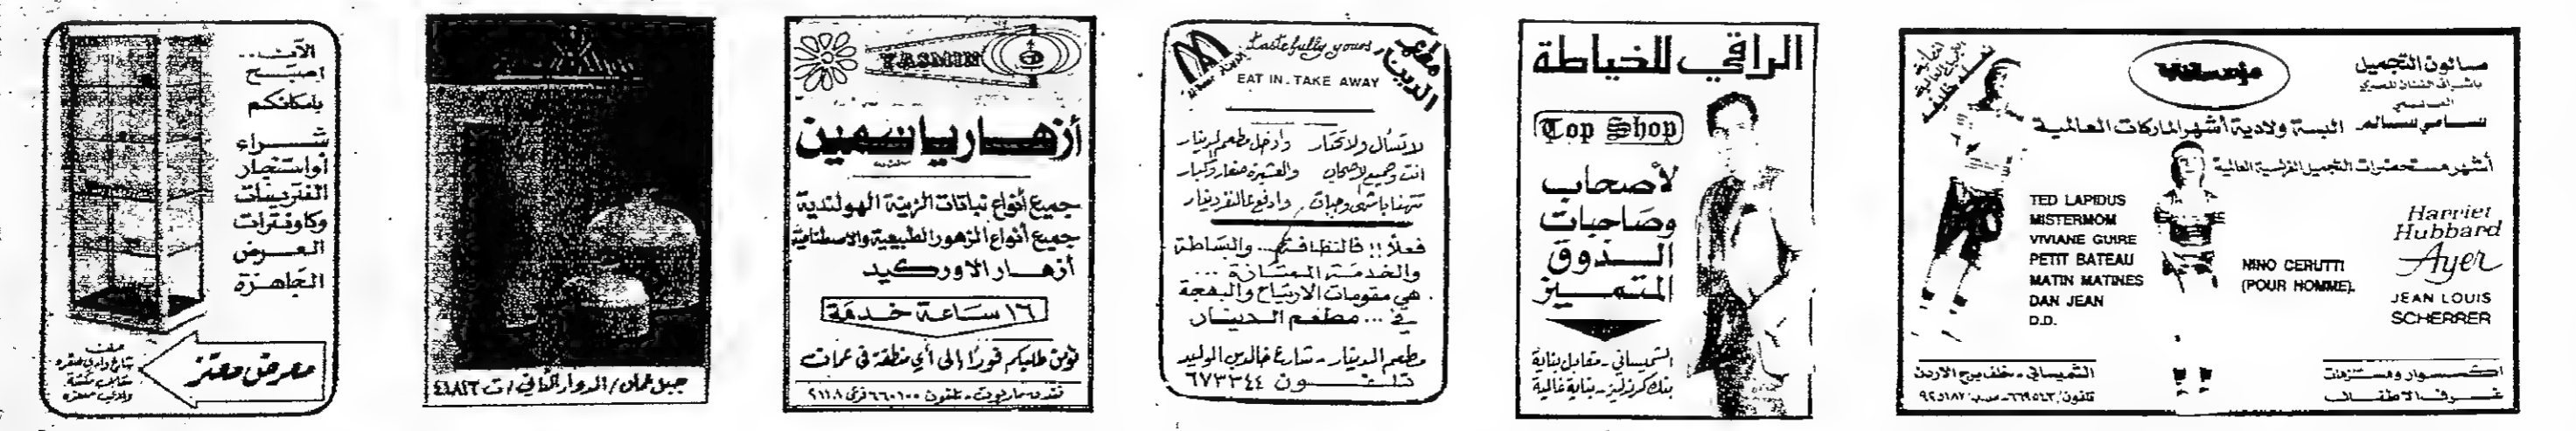 الآن...
اصبح
بامكانكم
شراء
أو استئجار
الفترينات
وكاونترات
العرض
الجاهزة
معرض معتز
جبل عمان / الدوار الثاني / ت ٤١٨٢٦
YASMIN
أزهار ياسمين
جميع أنواع نباتات الزينة الهولندية
جميع أنواع الزهور الطبيعية والاصطناعية
أزهار الاوركيد
١٦ ساعة خدمة
نؤمن طلبكم فورًا إلى أي منطقة في عمان
فندق ماريوت - تلفون ٦٦٠١٠٠ فرعي ٢١١٨
مطعم الدينار
Tastefully yours
EAT IN - TAKE AWAY
لا تسأل ولا تحتار وادخل مطعم الدينار
انت وجميع الاصحاب والعشيرة صغار وكبار
تتهنا باشهى وجبات وادفع عالنفر دينار
فعلاً!! فالنظافة... والبساطة
والخدمة الممتازة...
هي مقومات الارتياح والبهجة
في... مطعم الدينار
مطعم الدينار - شارع خالد بن الوليد
تلفون ٦٧٣٣٤٤
الراقي للخياطة
Top Shop
لأصحاب
وصاحبات
الذوق
المتميز
الشميساني - مقابل بناية
بنك كرندليز - بناية غالية
صالون التجميل
باشراف الفنان المصري
سامي سالم
البسة ولادية أشهر الماركات العالمية
أشهر مستحضرات التجميل الفرنسية العالية
TED LAPIDUS
MISTERMOM
VIVIANE GUIRE
PETIT BATEAU
MATIN MATINES
DAN JEAN
D.D.
NINO CERUTTI
(POUR HOMME).
Harriet
Hubbard
Ayer
JEAN LOUIS
SCHERRER
الشميساني - خلف برج الاردن
تلفون / ٦٦٩٥٤٣ - ص.ب / ٩٢٥١٨٧
اكسسوار ومستلزمات
غرف الاطفال